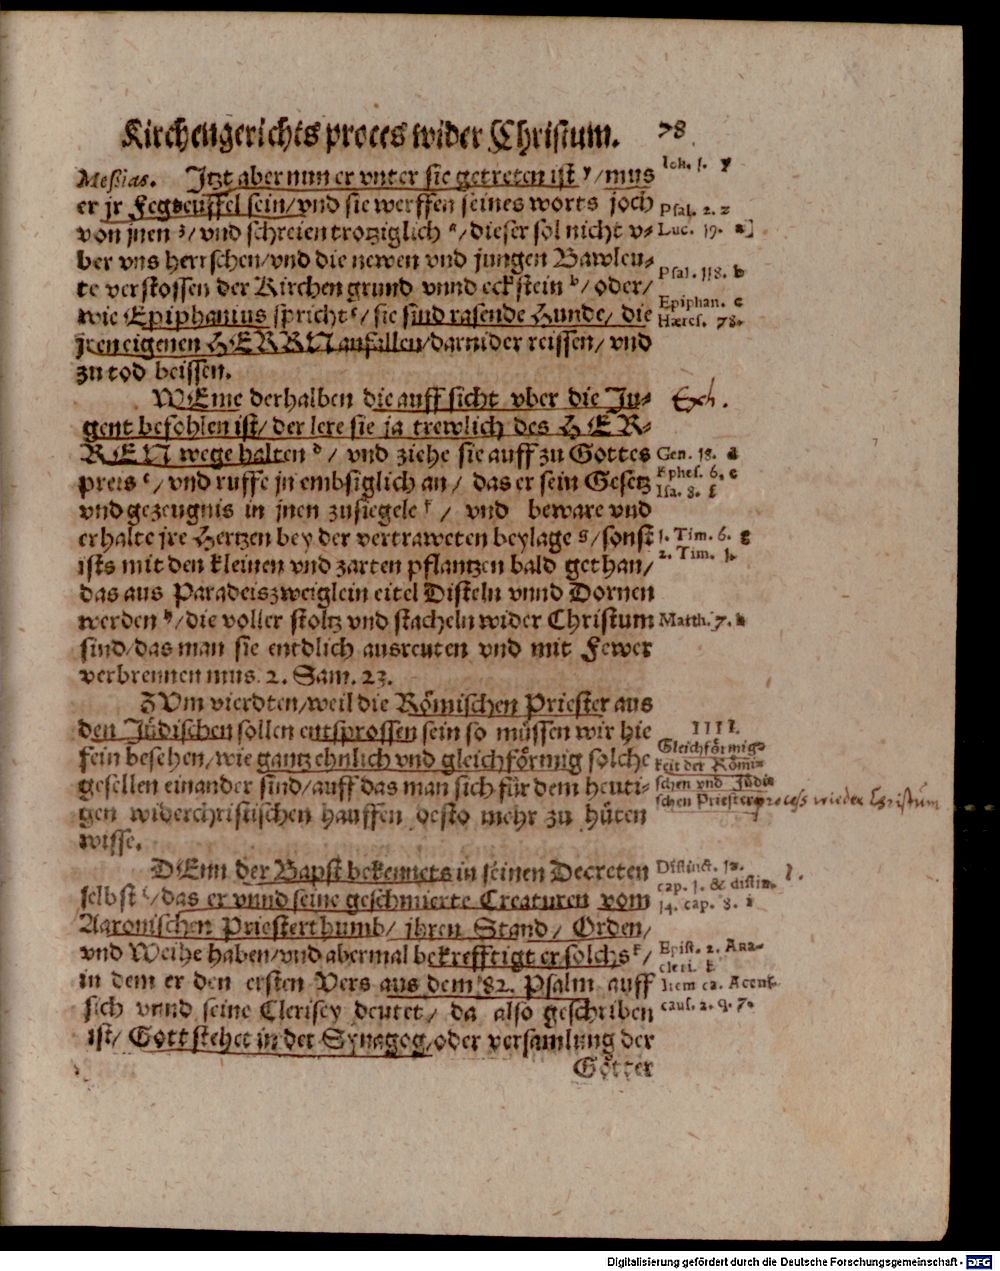 Kirchengerichts proces wider Christum. 78
Messias. Jtzt aber nun er vnter sie getreten ist y/mus
Ioh. 1. y
er jr Fegteuffel sein/vnd sie werffen seines worts joch
Psal. 2. z
von jnen z/vnd schreien trotziglich a/dieser sol nicht v-
Luc. 19. a]
ber vns herrschen/vnd die newen vnd jungen Bawleu-
te verstossen der Kirchen grund vnnd eckstein b/oder/
Psal. 118. b
wie Epiphanius spricht c/sie sind rasende Hunde/die
Epiphan. c
Hæres. 78.
jren eigenen HERRN anfallen/darnider reissen/vnd
zu tod beissen.
WEme derhalben die auffsicht vber die Ju-
Exh.
gent befohlen ist/der lere sie ja trewlich des HER-
REN wege halten d/vnd ziehe sie auff zu Gottes
Gen. 18. d
preis e/vnd ruffe jn embsiglich an/das er sein Gesetz
Ephes. 6. e
Isa. 8. f
vnd gezeugnis in jnen zusiegele f/vnd beware vnd
erhalte jre Hertzen bey der vertraweten beylage g/sonst
1. Tim. 6. g
2. Tim. 1.
ists mit den kleinen vnd zarten pflantzen bald gethan/
das aus Paradeiszweiglein eitel Disteln vnnd Dornen
werden h/die voller stoltz vnd stacheln wider Christum
Matth. 7. h
sind/das man sie entdlich ausreuten vnd mit Fewer
verbrennen mus. 2. Sam. 23.
ZVm vierdten/weil die Römischen Priester aus
den Jüdischen sollen entsprossen sein so müssen wir hie
IIII.
fein besehen/wie gantz ehnlich vnd gleichförmig solche
Gleichförmig-
keit der Römi-
gesellen einander sind/auff das man sich für dem heuti-
schen vnd Jüdi
schen Priester process wieder Christum
gen widerchristischen hauffen desto mehr zu hüten
wisse.
DEnn der Bapst bekennets in seinen Decreten
Distinct. 12.
1.
selbst i/das er vnnd seine geschmierte Creaturen vom
cap. 1. & distin.
14. cap. 8. i
Aaronischen Priesterthumb/jhren Stand/Orden/
vnd Weihe haben/vnd abermal bekrefftigt er solchs k/
Epist. 2. Ana-
cleti. k
in dem er den ersten Vers aus dem 82. Psalm auff
Item ca. Accus.
sich vnnd seine Clerisey deutet/da also geschriben
caus. 2. q. 7.
ist/Gott stehet in der Synagog/oder versamlung der
Götter
Digitalisierung gefördert durch die Deutsche Forschungsgemeinschaft - DFG